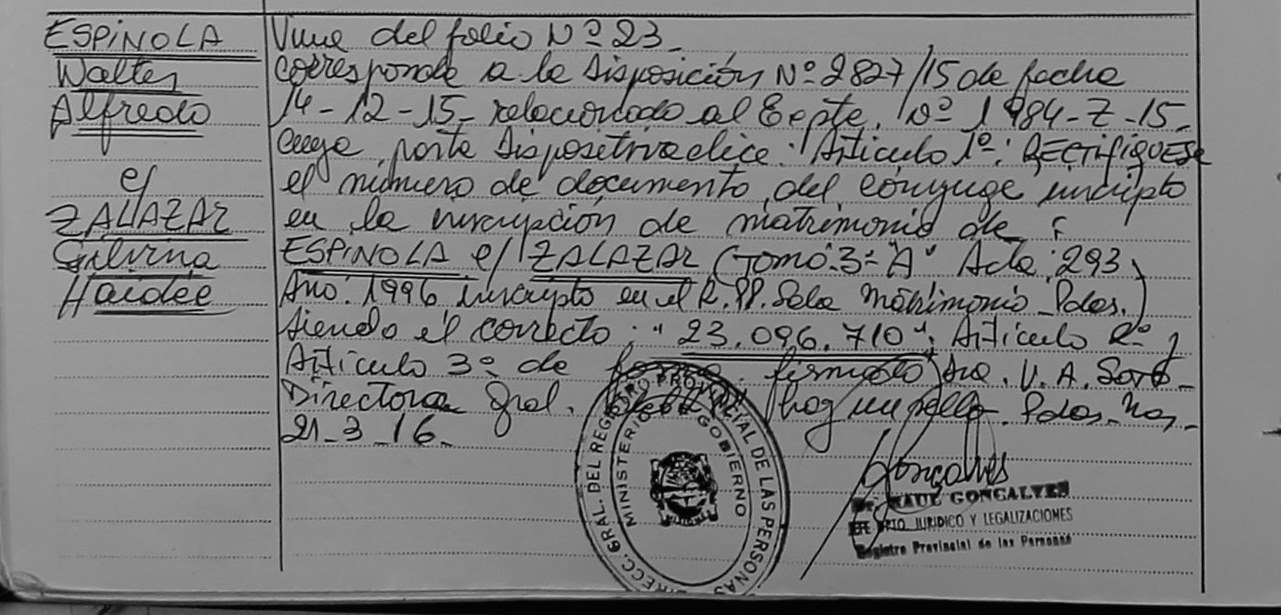 ESPINOLA
Walter
Alfredo
c/
ZALAZAR
Silvina
Haidée
Viene del folio Nº 23_
corresponde a la Disposición Nº 2827/15 de fecha
14-12-15_ relacionado al Expte. Nº 1984-Z-15_
cuya parte Dispositiva dice: Artículo 1º: RECTIFIQUESE
el número de documento del cónyuge inscripto
en la inscripción de matrimonio de :
ESPINOLA c/ ZALAZAR (Tomo: 3º "A" Acta: 293
Año: 1996 inscripto en el R.PP. Sala Matrimonio_Pdas.)
siendo el correcto: "23.096.710". Artículo 2º y
Artículo 3º de forma. firmado V. A. Soto_
Directora Gral. Pdas_
21_3_16_
DIRECC. GRAL. DEL REGISTRO PROVINCIAL DE LAS PERSONAS
MINISTERIO GOBIERNO
Goncalves
Dr. RAUL GONCALVES
JEFE DPTO. JURIDICO Y LEGALIZACIONES
Registro Provincial de las Personas